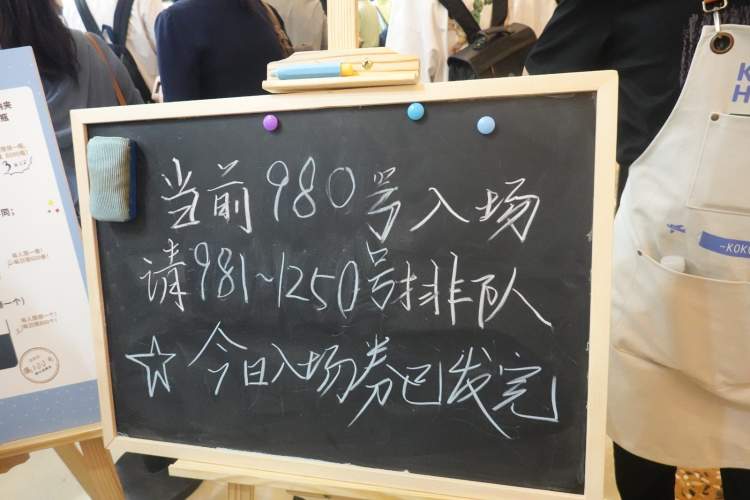 当前980号入场
请981~1250号排队
☆今日入场券已发完
-KOKU